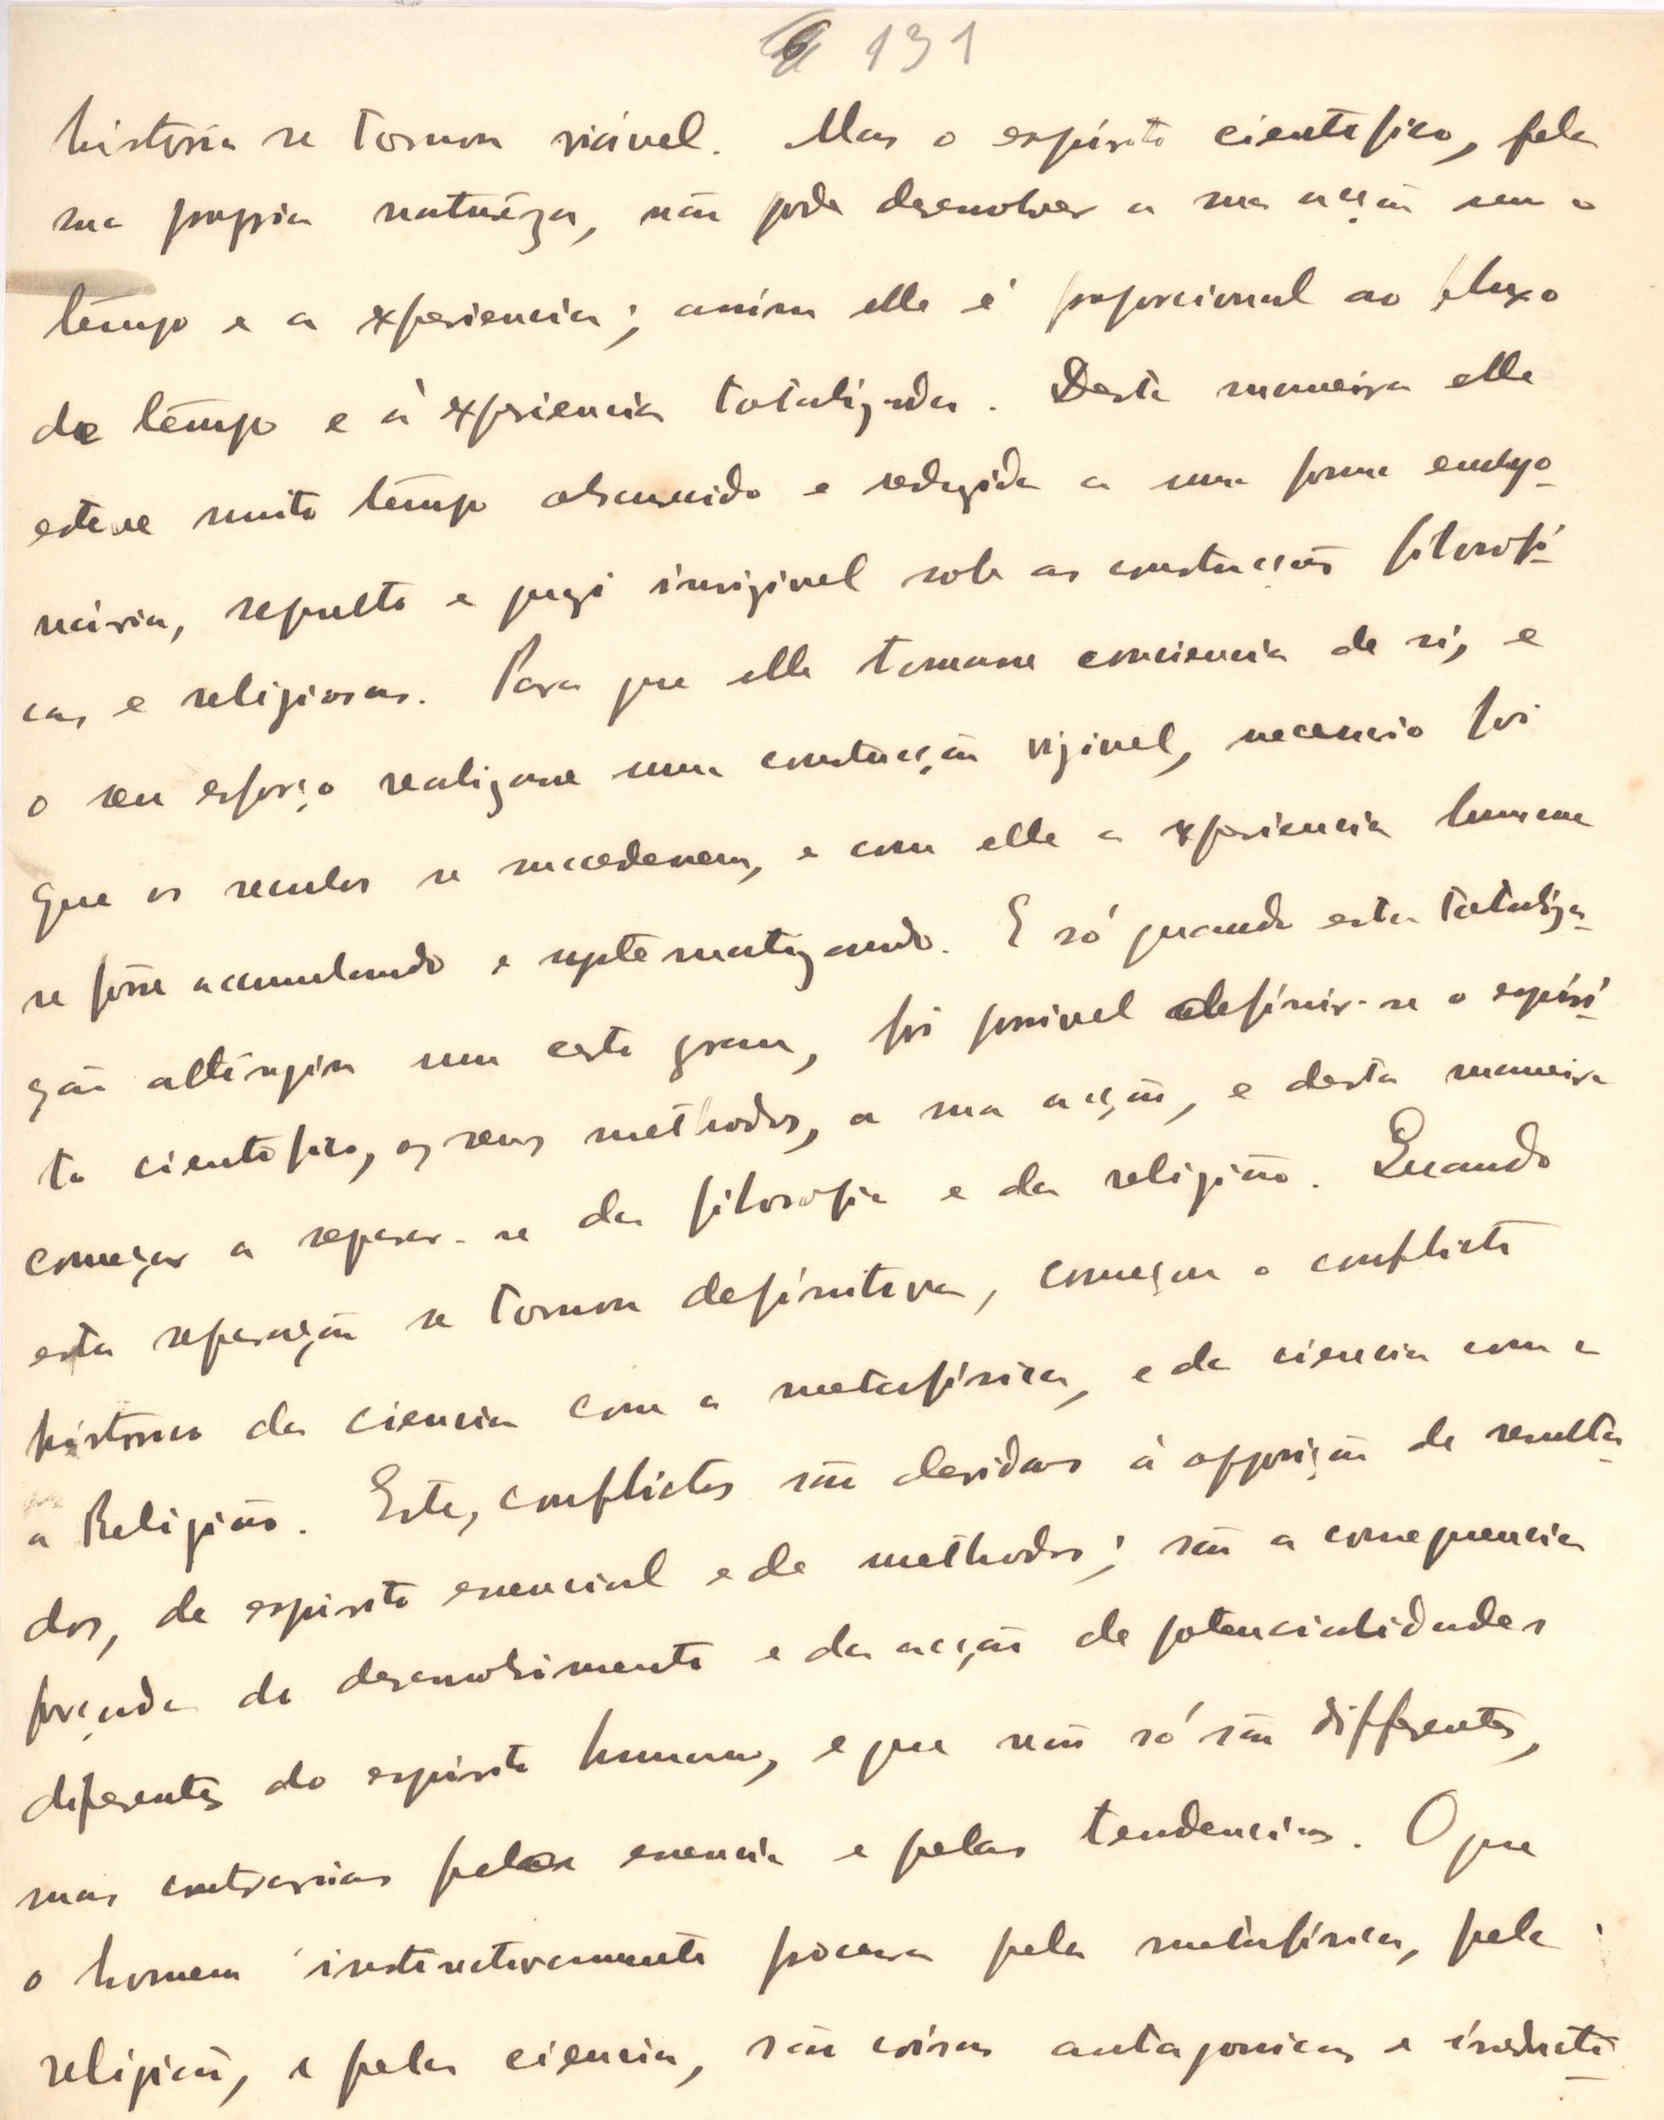 131
historia se tornou viável. Mas o espírito cientifico, pela
sua propria naturêza, não pode desenvolver a sua acção sem o
têmpo e a experiencia; assim elle é proporcional ao fluxo
de têmpo e à experiencia totalizada. Desta maneira elle
esteve muito têmpo obscurecido e reduzido a uma forma embryo-
nária, sepulto e quazi invizivel sob as construcções filosofi-
cas e religiosas. Para que elle tomasse consciencia de si, e
o seu esforço realizasse uma construcção vizivel, necessario foi
que os seculos se succedessem, e com elle a experiencia humana
se fôsse accumulando e systematizando. E só quando esta totaliza-
ção attingiu um certo grau, foi possivel definir-se o espiri-
to cientifico, os seus methodos, a sua acção, e desta maneira
começar a separar-se da filosofia e da religião. Quando
esta separação se tornou definitiva, começou o conflicto
histórico da ciencia com a metafísica, e da ciencia com a
a Religião. Estes conflictos são devidos à opposição de resulta-
dos, de espirito essencial e de methodos; são a consequencia
forçada do desenvolvimento e da acção de potencialidades
diferentes do espirito humano, e que não só são differentes,
mas contrarias pela essencia e pelas tendencias. O que
o homem instinctivamente procura pela metafísica, pela
religião, e pela ciencia, são coisas antagonicas e irreducti-